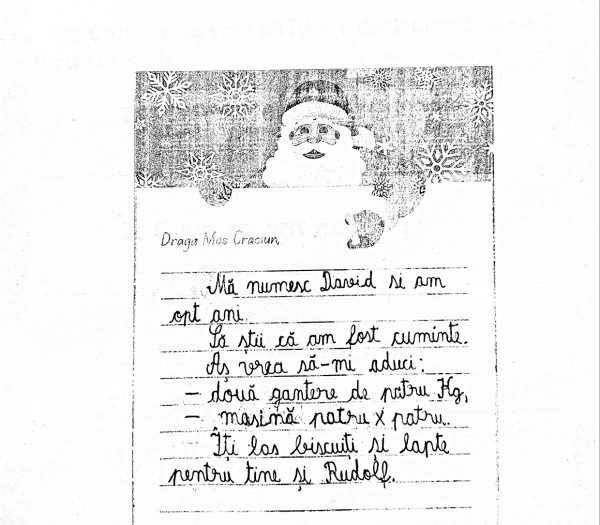 Draga Mos Craciun,
Mă numesc David si am
opt ani.
Să stii că am fost cuminte.
Aș vrea să-mi aduci:
- două gantere de patru Kg,
- masină patru x patru.
Îți las biscuiți și lapte
pentru tine și Rudolf.